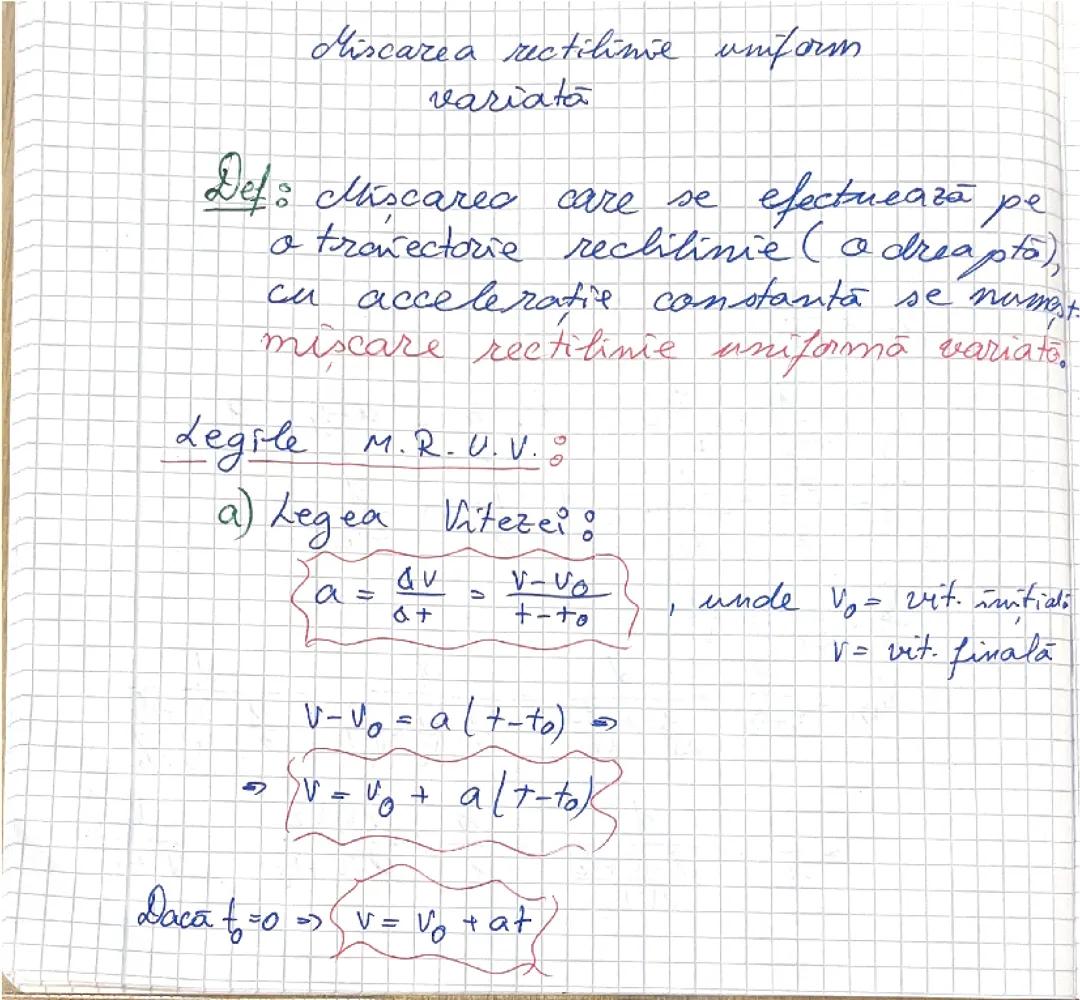 Mișcarea rectilinie uniform
variată
Def: Mișcarea care se efectuează pe
o traiectorie rectilinie (o dreaptă),
cu accelerație constantă se numeșt.
mișcare rectilinie uniformă variată.
Legile M.R.U.V.:
a) Legea Vitezei:
a = Δv/Δt = v-v₀/t-t₀ , unde v₀ = vit. inițială
v = vit. finală
v-v₀ = a(t-t₀) ⇒
⇒ v = v₀ + a(t-t₀)
Dacă t₀=0 ⇒ v = v₀ + at